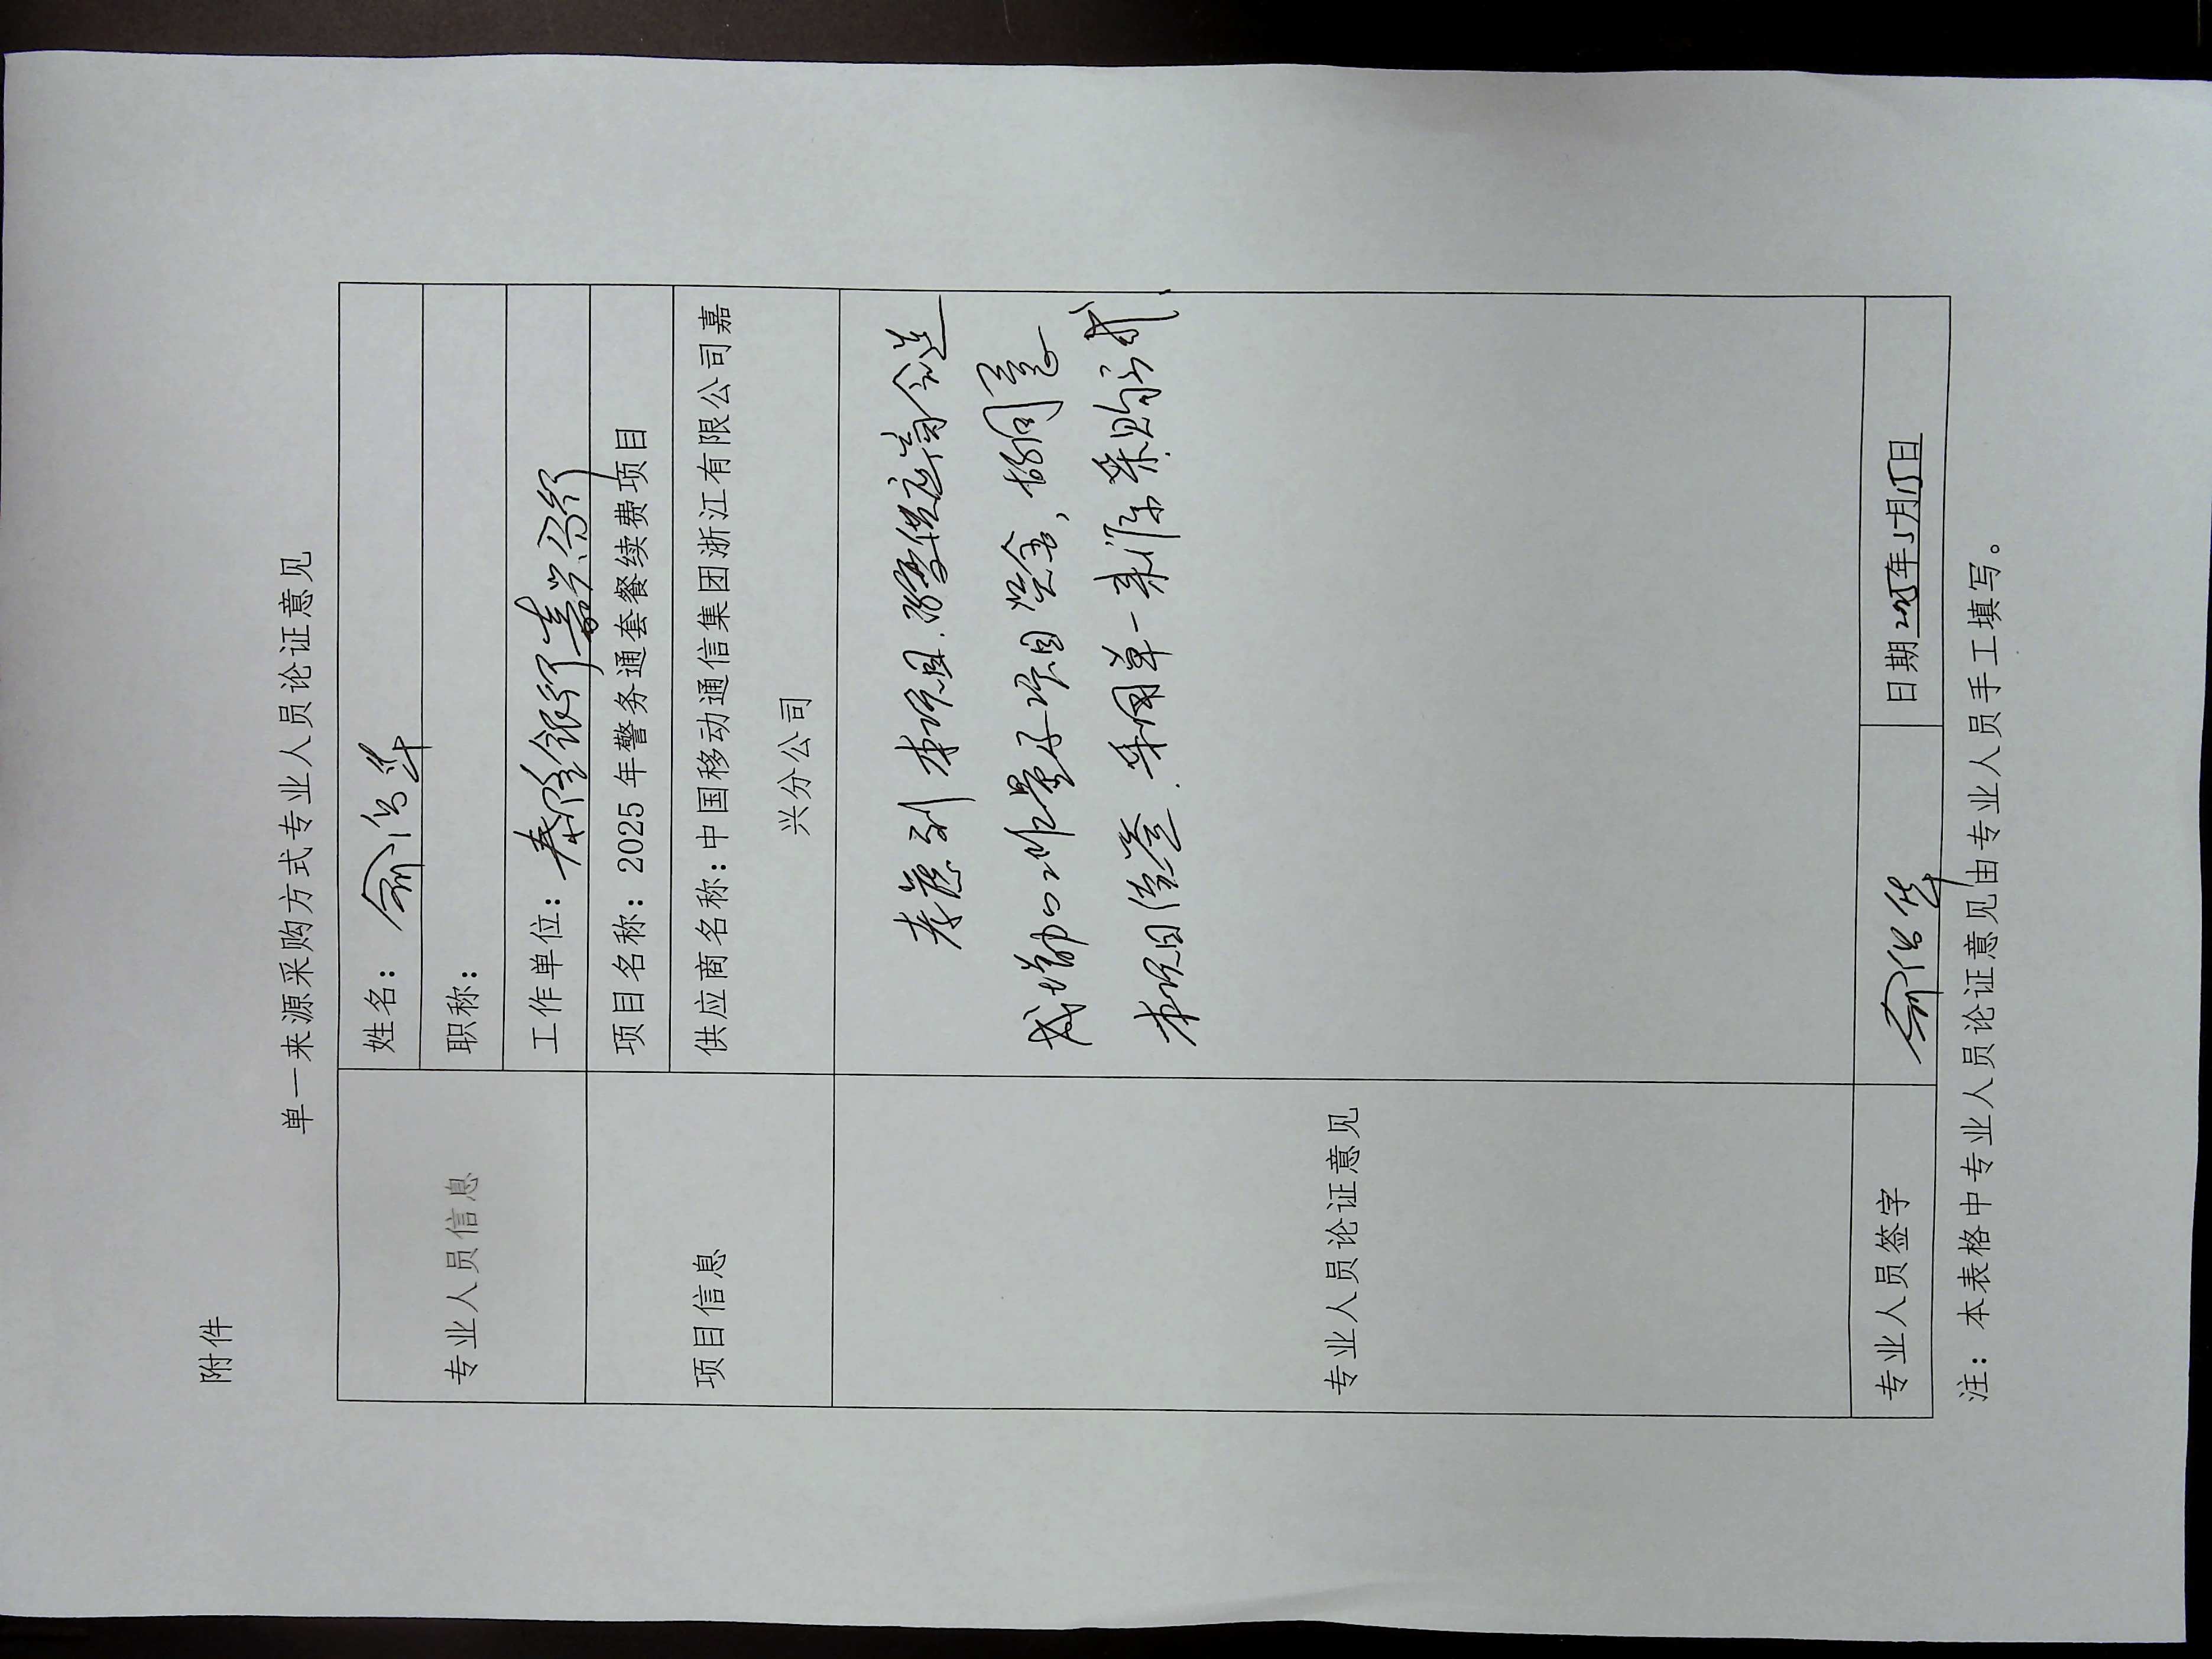 附件
单一来源采购方式专业人员论证意见
专业人员信息
姓名：俞浩华
职称：
工作单位：泰隆银行嘉兴分行
项目信息
项目名称：2025年警务通套餐续费项目
供应商名称：中国移动通信集团浙江有限公司嘉
兴分公司
专业人员论证意见
考虑到本项目，变供应商会造
成增加工作量及项目资金，故同意
本项目续签，采用单一来源采购方式
专业人员签字
俞浩华
日期2025年5月15日
注：本表格中专业人员论证意见由专业人员手工填写。